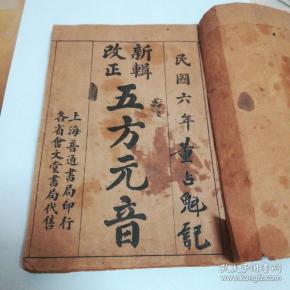 民國六年董占魁記
新輯
改正
五方元音
上海普通書局印行
各省會文堂書局代售
孔夫子旧书网